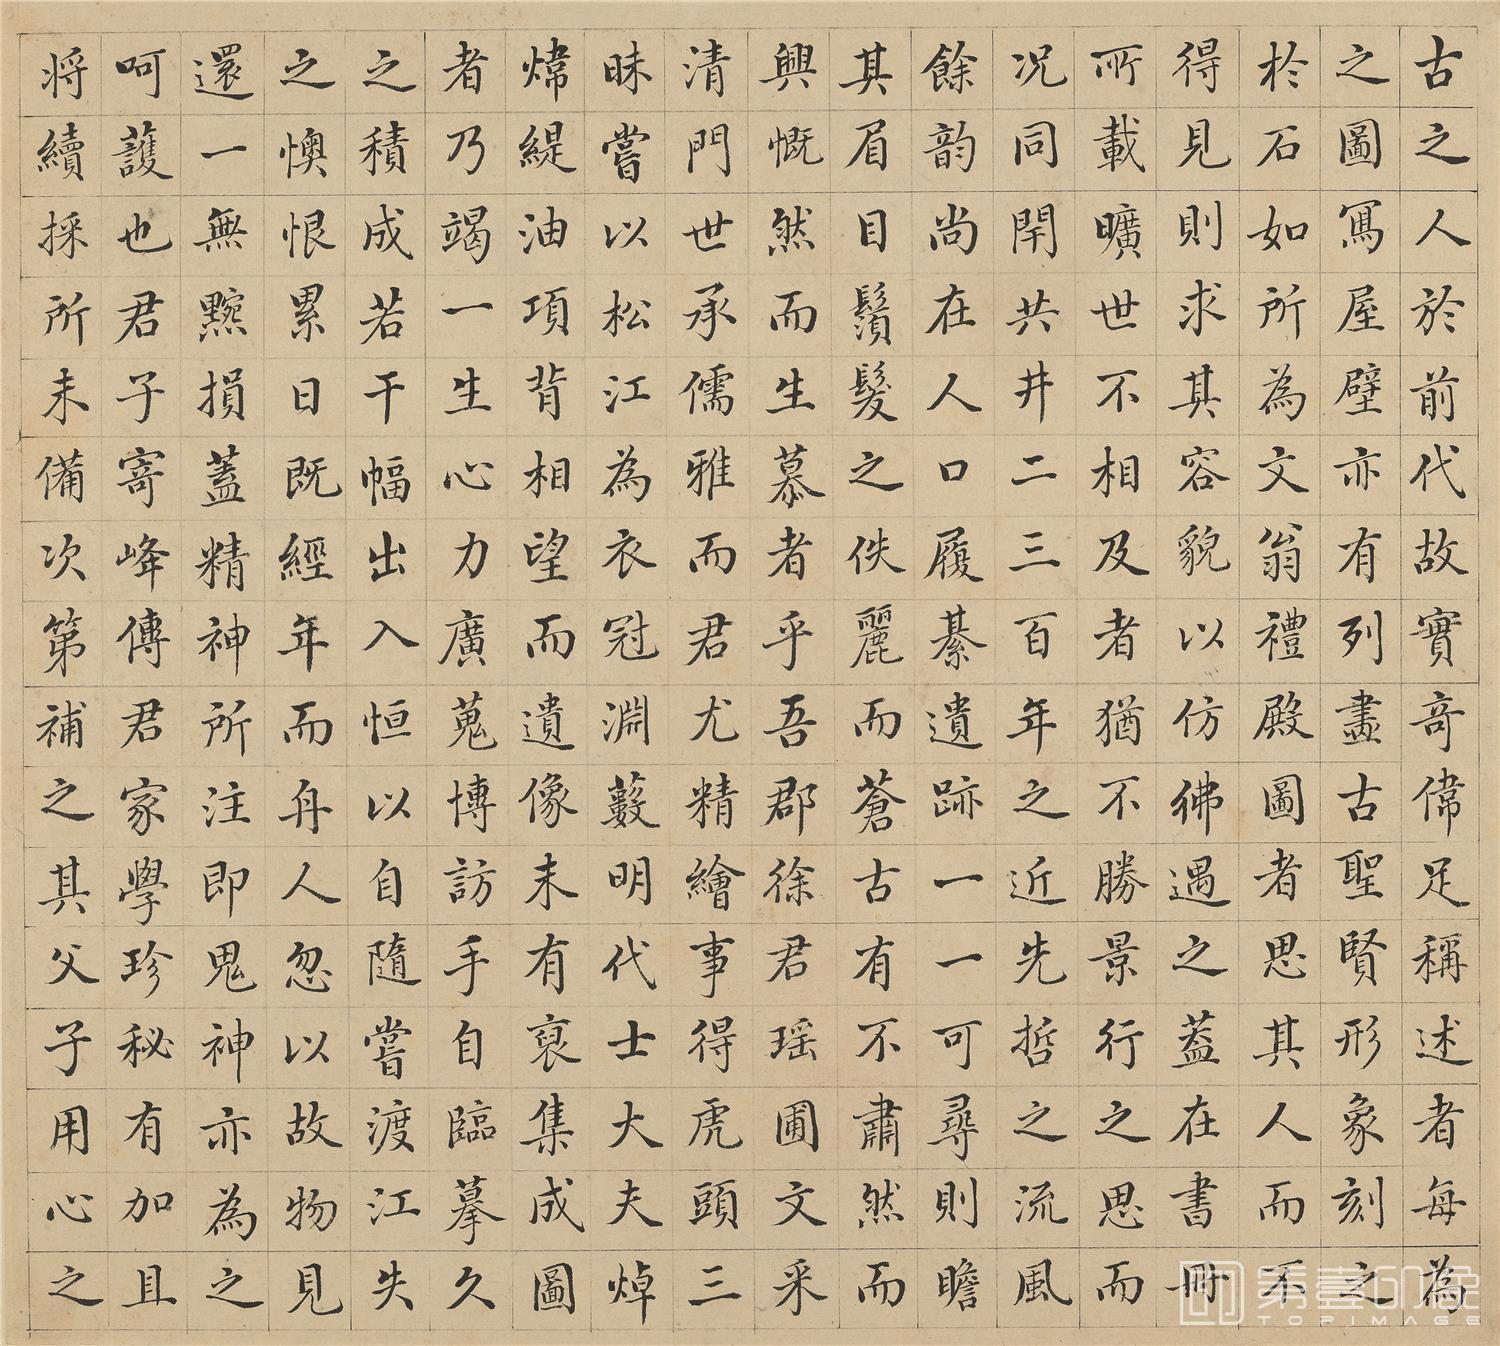 古之人於前代故實竒偉足稱述者每為
之圖寫屋壁亦有列畫古聖賢形象刻之
於石如所為文翁禮殿圖者思其人而不
得見則求其容貌以仿彿遇之蓋在書冊
所載曠世不相及者猶不勝景行之思而
况同閈共井二三百年之近先哲之流風
餘韵尚在人口履綦遺跡一一可尋則瞻
其眉目鬚髮之佚麗而蒼古有不肅然而
興慨然而生慕者乎吾郡徐君瑶圃文采
清門世承儒雅而君尤精繪事得虎頭三
昧嘗以松江為衣冠淵藪明代士大夫焯
煒緹油項背相望而遺像未有裒集成圖
者乃竭一生心力廣蒐博訪手自臨摹久
之積成若干幅出入恒以自隨嘗渡江失
之懊恨累日既經年而舟人忽以故物見
還一無黦損蓋精神所注即鬼神亦為之
呵護也君子寄峰傳君家學珍秘有加且
將續採所未備次第補之其父子用心之
第壹印象
TOPIMAGE